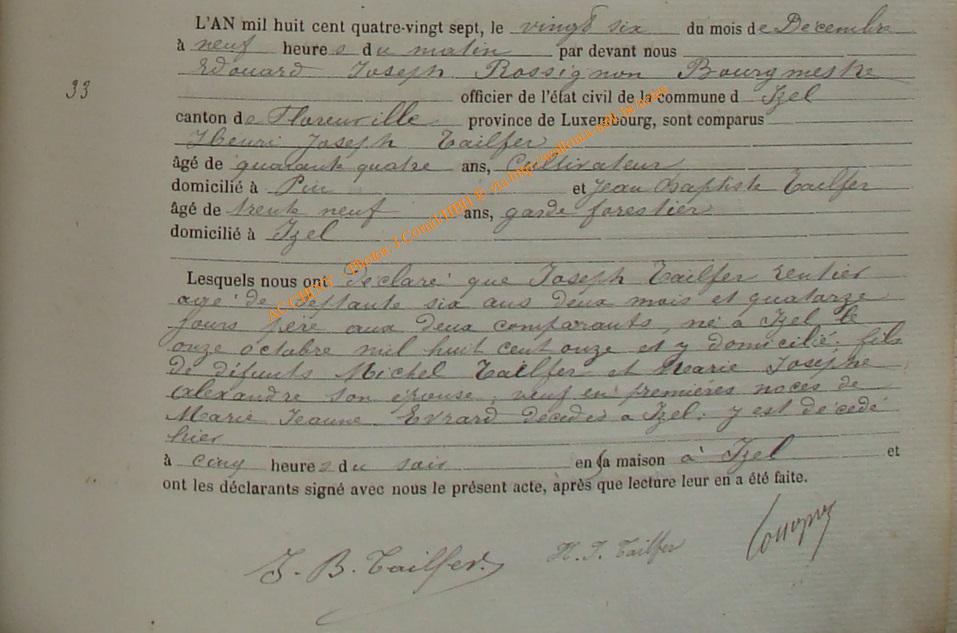 L'AN mil huit cent quatre-vingt sept, le vingt six du mois de Décembre
à neuf heures du matin par devant nous
Edouard Joseph Rossignon Bourgmestre
33
officier de l'état civil de la commune d Izel
canton de Florenville province de Luxembourg, sont comparus
Henri Joseph Tailfer
âgé de quarante quatre ans, Cultivateur
domicilié à Pin et Jean Baptiste Tailfer
âgé de trente neuf ans, garde forestier
domicilié à Izel
Lesquels nous ont déclaré que Joseph Tailfer rentier
agé de septante six ans deux mois et quatorze
jours père aux deux comparants, né à Izel le
onze octobre mil huit cent onze et y domicilié fils
de défunts Michel Tailfer et Marie Josephe
Alexandre son épouse, veuf en premières noces de
Marie Jeanne Evrard décédée à Izel: y est décédé
hier
à cinq heures du soir en sa maison à Izel et
ont les déclarants signé avec nous le présent acte, après que lecture leur en a été faite.
J. B. Tailfer.
H. J. Tailfer